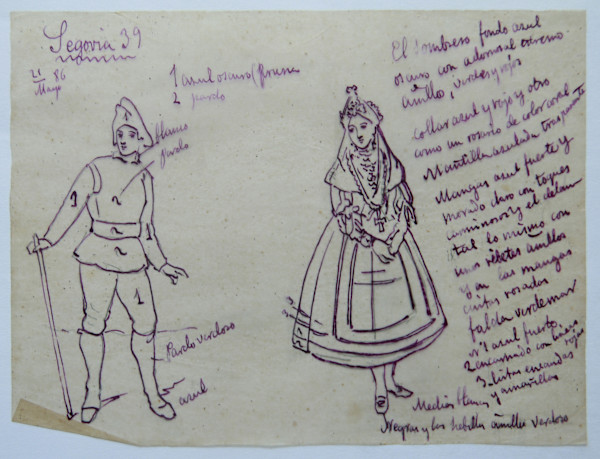 Segovia 39
21
Mayo 86
1 azul oscuro (
2 pardo
blanco
Pardo
1
2
2
1
2
1
Pardo verdoso
azul
El sombrero fondo azul
oscuro con adornos al extremo
amillo, verdes y rojos
collar azul y rojo y otro
como un rosario de color coral
Mantilla azulada trasparente
Mangas azul fuerte y
morado claro con toques
carminosos y el delan
tal lo mismo con
unos ribetes amillos
y en las mangas
cintas rosadas
falda verdemar
nº 1 azul fuerte
2 encarnado con lineas rojas
3 listas encarnadas
y amarillas
Medias blancas
Negras y las hebillas amillo verdoso